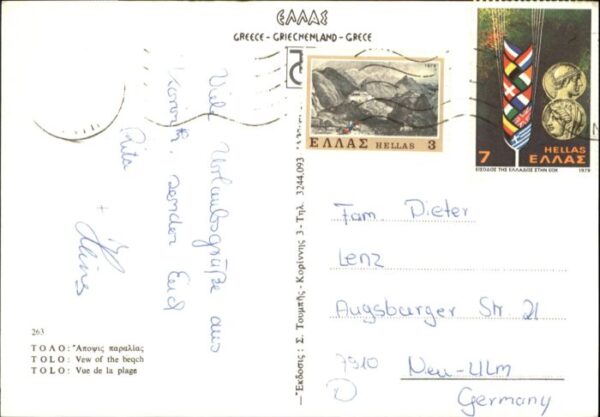 ΕΛΛΑΣ
GREECE - GRIECHENLAND - GRECE
Viele Urlaubsgrüße aus
Korinth, senden Euch
Rita
+
Heinz
263
ΤΟΛΟ: Ἄποψις παραλίας
TOLO: Vew of the beqch
TOLO: Vue de la plage
Ἔκδοσις: Σ. Τουμπῆς - Κορίννης 3 - Τηλ. 3244.093
1979
ΕΛΛΑΣ HELLAS 3
7
HELLAS
ΕΛΛΑΣ
ΕΙΣΟΔΟΣ ΤΗΣ ΕΛΛΑΔΟΣ ΣΤΗΝ ΕΟΚ 1979
Fam. Dieter
Lenz
Augsburger Str 21
7910 Neu-Ulm
D
Germany